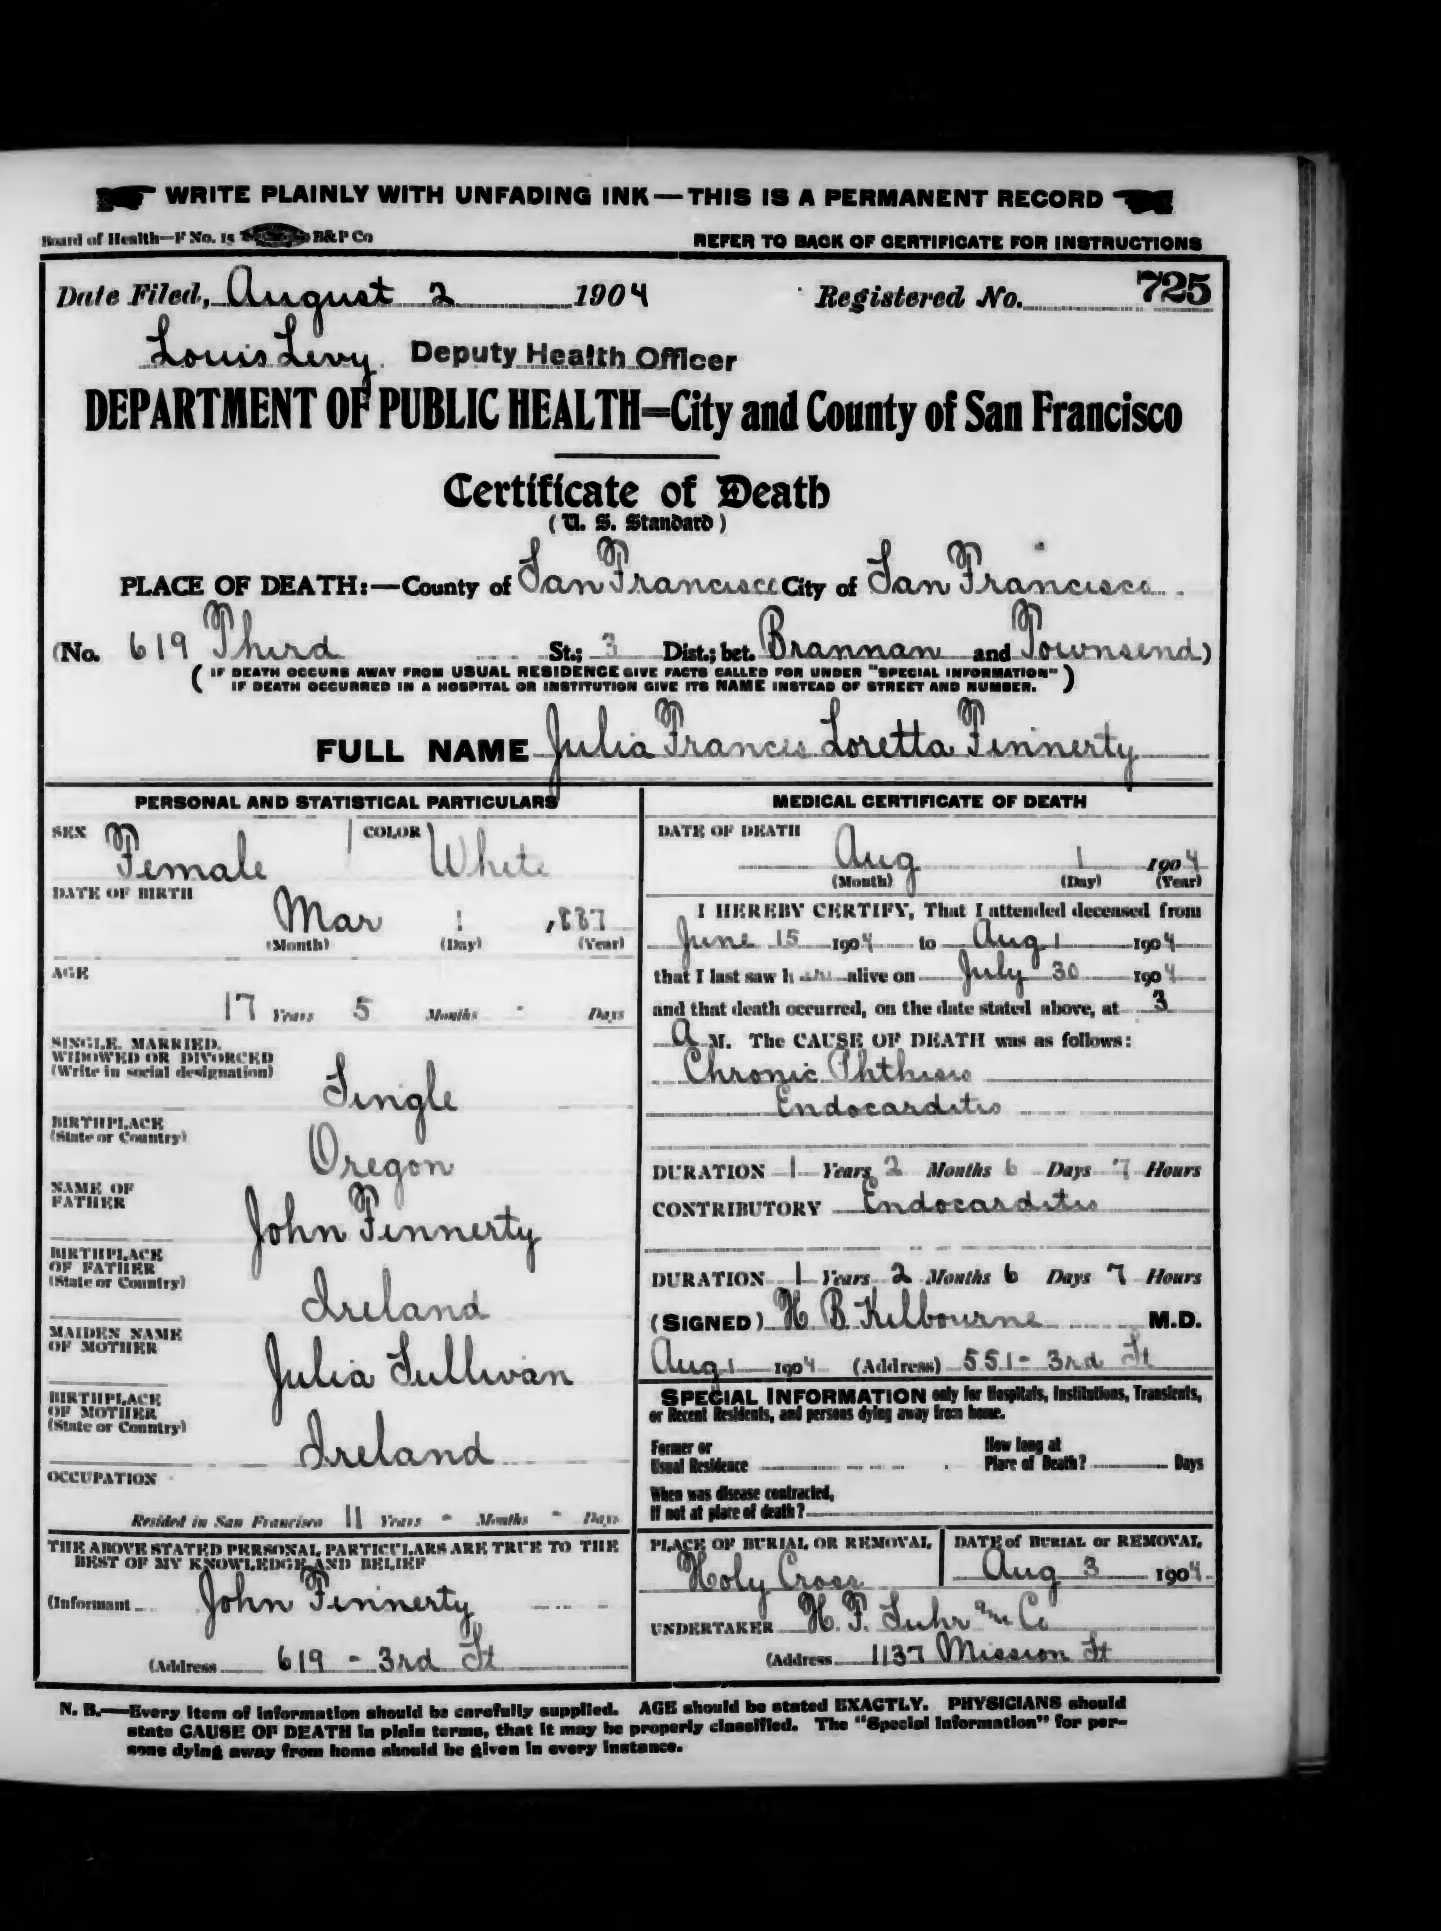 WRITE PLAINLY WITH UNFADING INK—THIS IS A PERMANENT RECORD
Board of Health—F No. 15 B&P Co
REFER TO BACK OF CERTIFICATE FOR INSTRUCTIONS
Date Filed, August 2 1904 Registered No. 725
Louis Levy Deputy Health Officer
DEPARTMENT OF PUBLIC HEALTH=City and County of San Francisco
Certificate of Death
(U. S. Standard)
PLACE OF DEATH:—County of San Francisco City of San Francisco
(No. 619 Third St.; 3 Dist.; bet. Brannan and Townsend)
( IF DEATH OCCURS AWAY FROM USUAL RESIDENCE GIVE FACTS CALLED FOR UNDER "SPECIAL INFORMATION" )
IF DEATH OCCURRED IN A HOSPITAL OR INSTITUTION GIVE ITS NAME INSTEAD OF STREET AND NUMBER.
FULL NAME Julia Frances Loretta Finnerty
PERSONAL AND STATISTICAL PARTICULARS
SEX Female COLOR White
DATE OF BIRTH
Mar 1 1887
(Month) (Day) (Year)
AGE
17 Years 5 Months - Days
SINGLE, MARRIED,
WIDOWED OR DIVORCED
(Write in social designation)
Single
BIRTHPLACE
(State or Country)
Oregon
NAME OF
FATHER
John Finnerty
BIRTHPLACE
OF FATHER
(State or Country)
Ireland
MAIDEN NAME
OF MOTHER
Julia Sullivan
BIRTHPLACE
OF MOTHER
(State or Country)
Ireland
OCCUPATION
Resided in San Francisco 11 Years - Months - Days
THE ABOVE STATED PERSONAL PARTICULARS ARE TRUE TO THE
BEST OF MY KNOWLEDGE AND BELIEF
(Informant John Finnerty
(Address 619 - 3rd St
MEDICAL CERTIFICATE OF DEATH
DATE OF DEATH
Aug 1 1904
(Month) (Day) (Year)
I HEREBY CERTIFY, That I attended deceased from
June 15 1904 to Aug 1 1904
that I last saw her alive on July 30 1904
and that death occurred, on the date stated above, at 3
A M. The CAUSE OF DEATH was as follows:
Chronic Phthisis
Endocarditis
DURATION 1 Years 2 Months 6 Days 7 Hours
CONTRIBUTORY Endocarditis
DURATION 1 Years 2 Months 6 Days 7 Hours
(SIGNED) H B Kilbourne M.D.
Aug 1 1904 (Address) 551 - 3rd St
SPECIAL INFORMATION only for Hospitals, Institutions, Transients,
or Recent Residents, and persons dying away from home.
Former or
Usual Residence
How long at
Place of Death? Days
When was disease contracted,
If not at place of death?
PLACE OF BURIAL OR REMOVAL
Holy Cross
DATE of BURIAL or REMOVAL
Aug 3 1904
UNDERTAKER H. F. Suhr and Co
(Address 1137 Mission St
N. B.—Every item of information should be carefully supplied. AGE should be stated EXACTLY. PHYSICIANS should
state CAUSE OF DEATH in plain terms, that it may be properly classified. The "Special Information" for per-
sons dying away from home should be given in every instance.